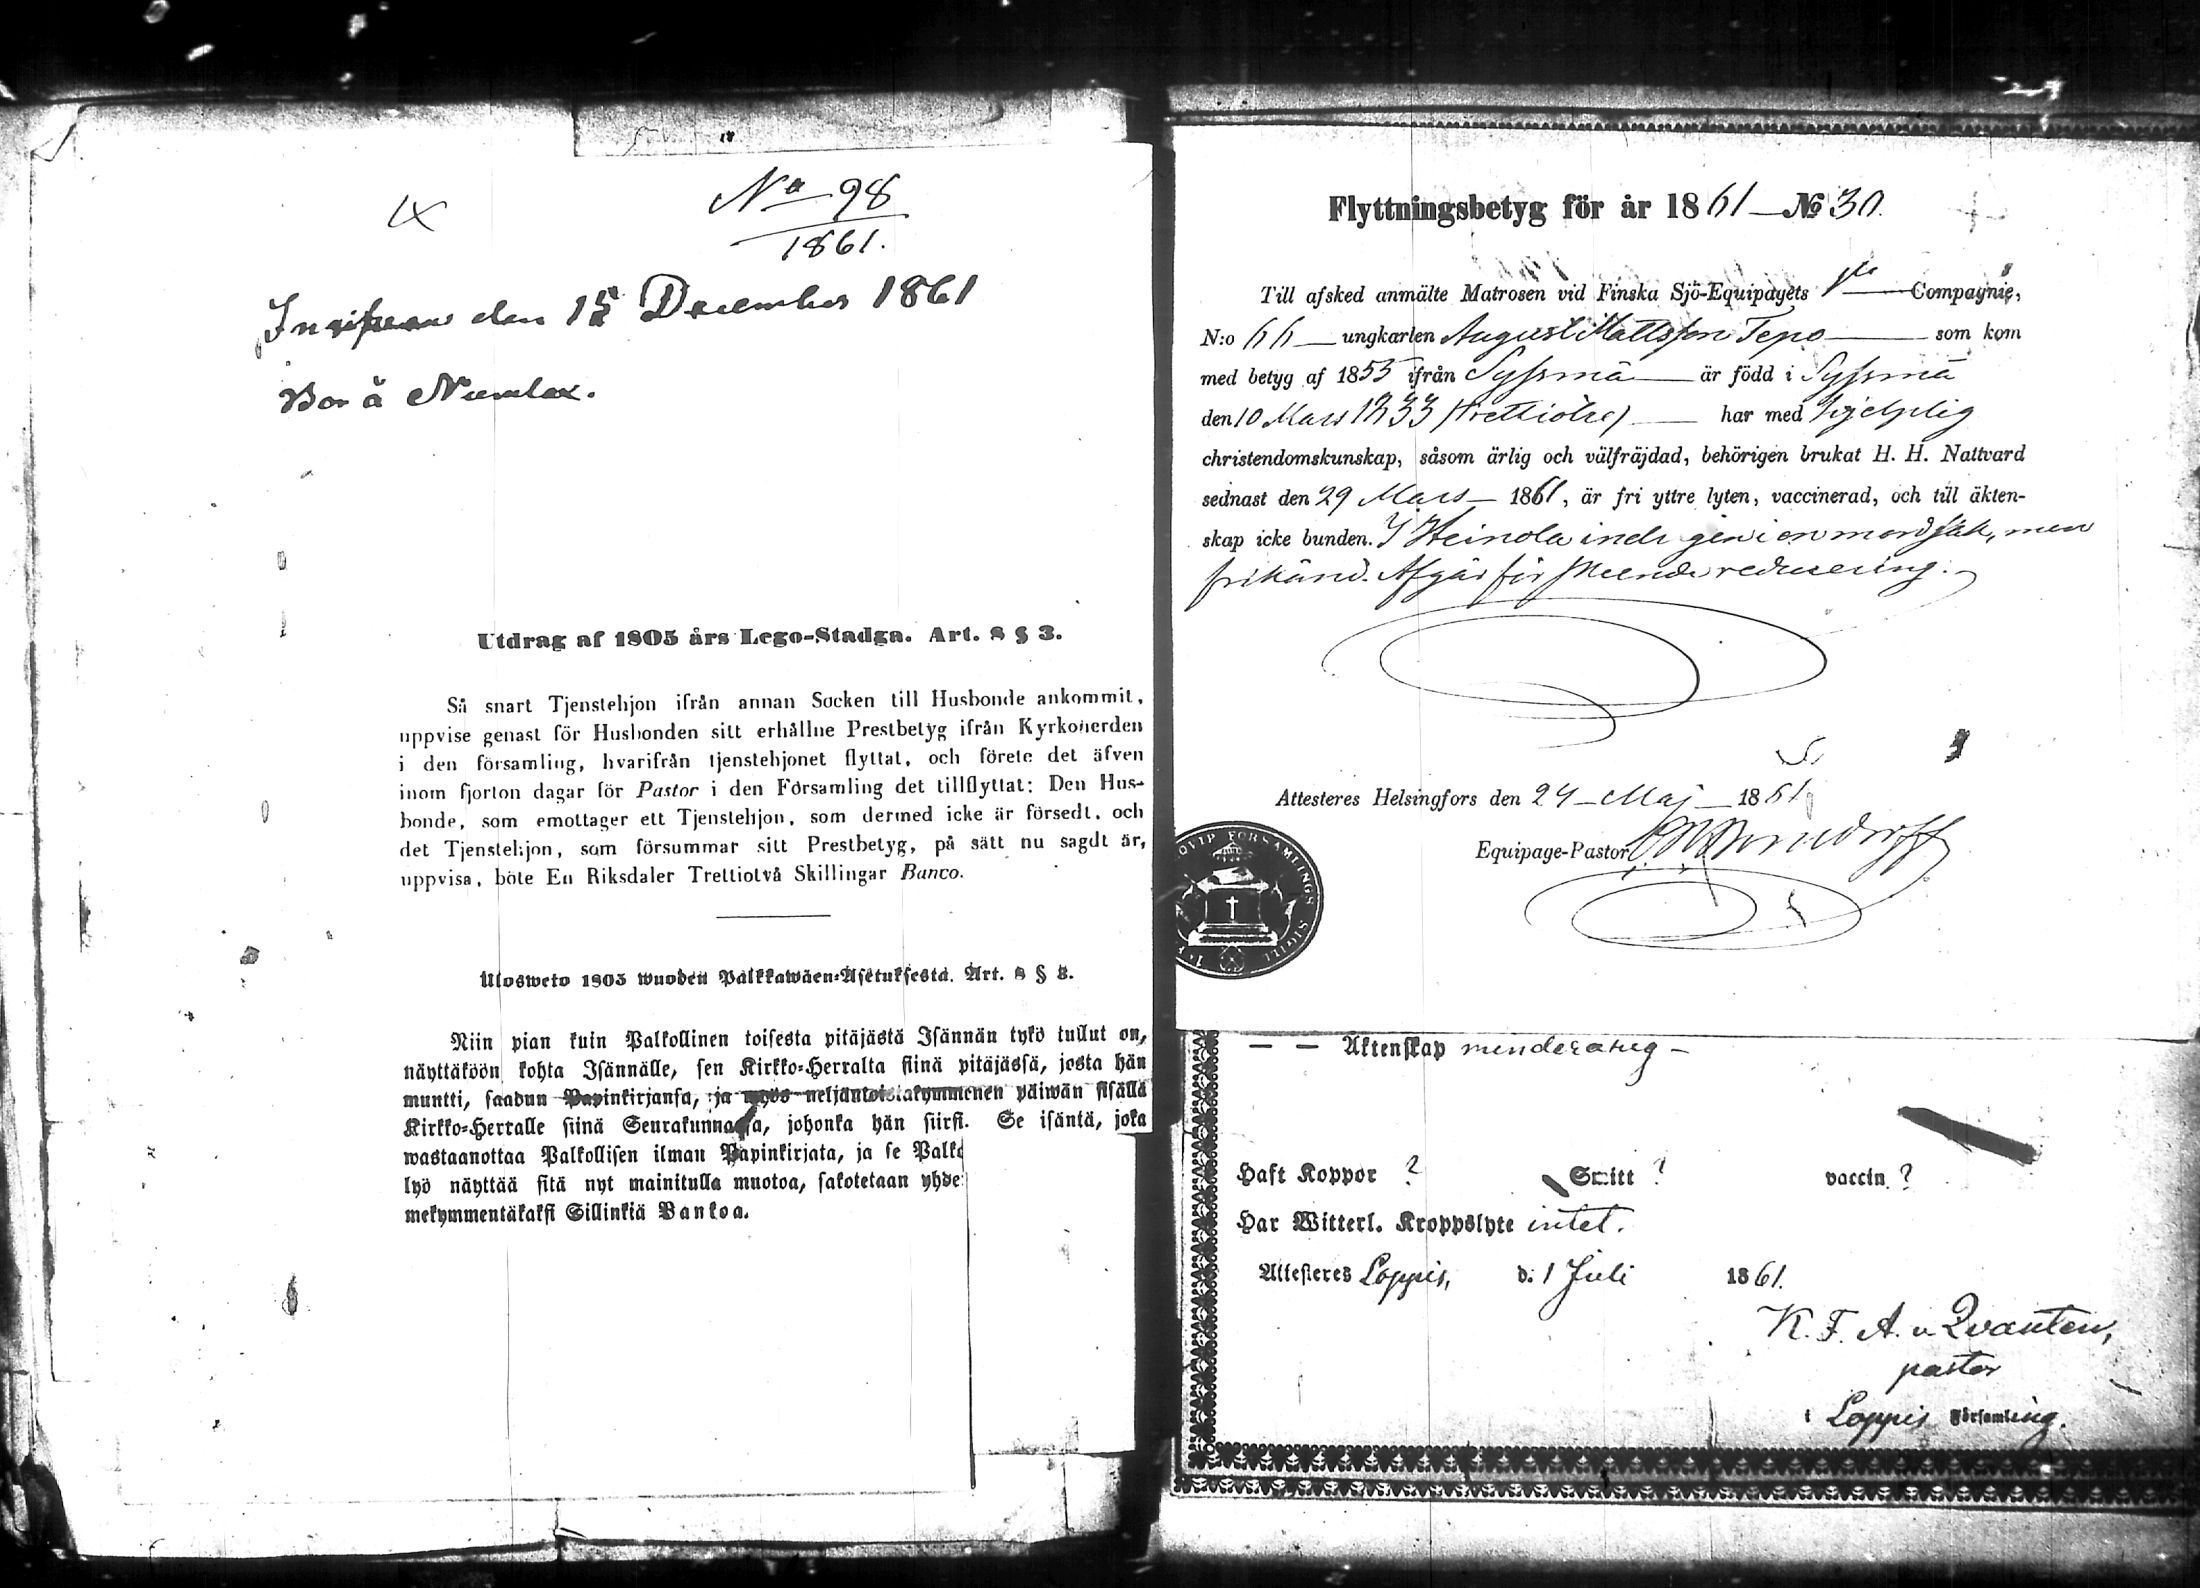 No 98
1861.
den 15 December 1861
Bor å Numlax.
Utdrag af 1805 års Lego-Stadga. Art. 8 § 3.
Så snart Tjenstehjon ifrån annan Socken till Husbonde ankommit,
uppvise genast för Husbonden sitt erhållne Prestbetyg ifrån Kyrkoherden
i den församling, hvarifrån tjenstehjonet flyttat, och förete det äfven
inom fjorton dagar för Pastor i den Församling det tillflyttat: Den Hus-
bonde, som emottager ett Tjenstehjon, som dermed icke är försedt, och
det Tjenstehjon, som försummar sitt Prestbetyg, på sätt nu sagdt är,
uppvisa, böte En Riksdaler Trettiotvå Skillingar Banco.
Ulosweto 1805 wuoden Palkkawäen-Asetuksesta. Art. 8 § 3.
Niin pian kuin Palkollinen toisesta pitäjästä Isännän tykö tullut on,
näyttäköön kohta Isännälle, sen Kirkko-Herralta siinä pitäjässä, josta hän
muntti, saadun Papinkirjansa, ja myös neljäntoistakymmenen päiwän sisällä
Kirkko-Herralle siinä Seurakunnassa, johonka hän siirsi. Se isäntä, joka
wastaanottaa Palkollisen ilman Papinkirjata, ja se Palko
lyö näyttää sitä nyt mainitulla muotoa, sakotetaan yhde
mekymmentäkaksi Sillinkiä Bankoa.
Flyttningsbetyg för år 1861 — No 30.
Till afsked anmälte Matrosen vid Finska Sjö-Equipagets 1sta Compagnie,
N:o 66 ungkarlen August Mattsson Tepo som kom
med betyg af 1855 ifrån Syssmä är född i Syssmä
den 10 Mars 1833 (trettiotre) har med hjelplig
christendomskunskap, såsom ärlig och välfräjdad, behörigen brukat H. H. Nattvard
sednast den 29 Mars 1861, är fri yttre lyten, vaccinerad, och till äkten-
skap icke bunden. I Heinola i en mordsak, men
frikänd. Afgår för reducering.
Attesteres Helsingfors den 24 Maj 1861
Equipage-Pastor
FÖRSAMLINGS SIGILL
Äktenskap minderårig
Haft Koppor ? Smitt ? vaccin ?
Har Witterl. Kroppslyte intet.
Attesteres Loppis, d. 1 Juli 1861.
K. F. A. v. Qvanten,
pastor
i Loppis Församling.